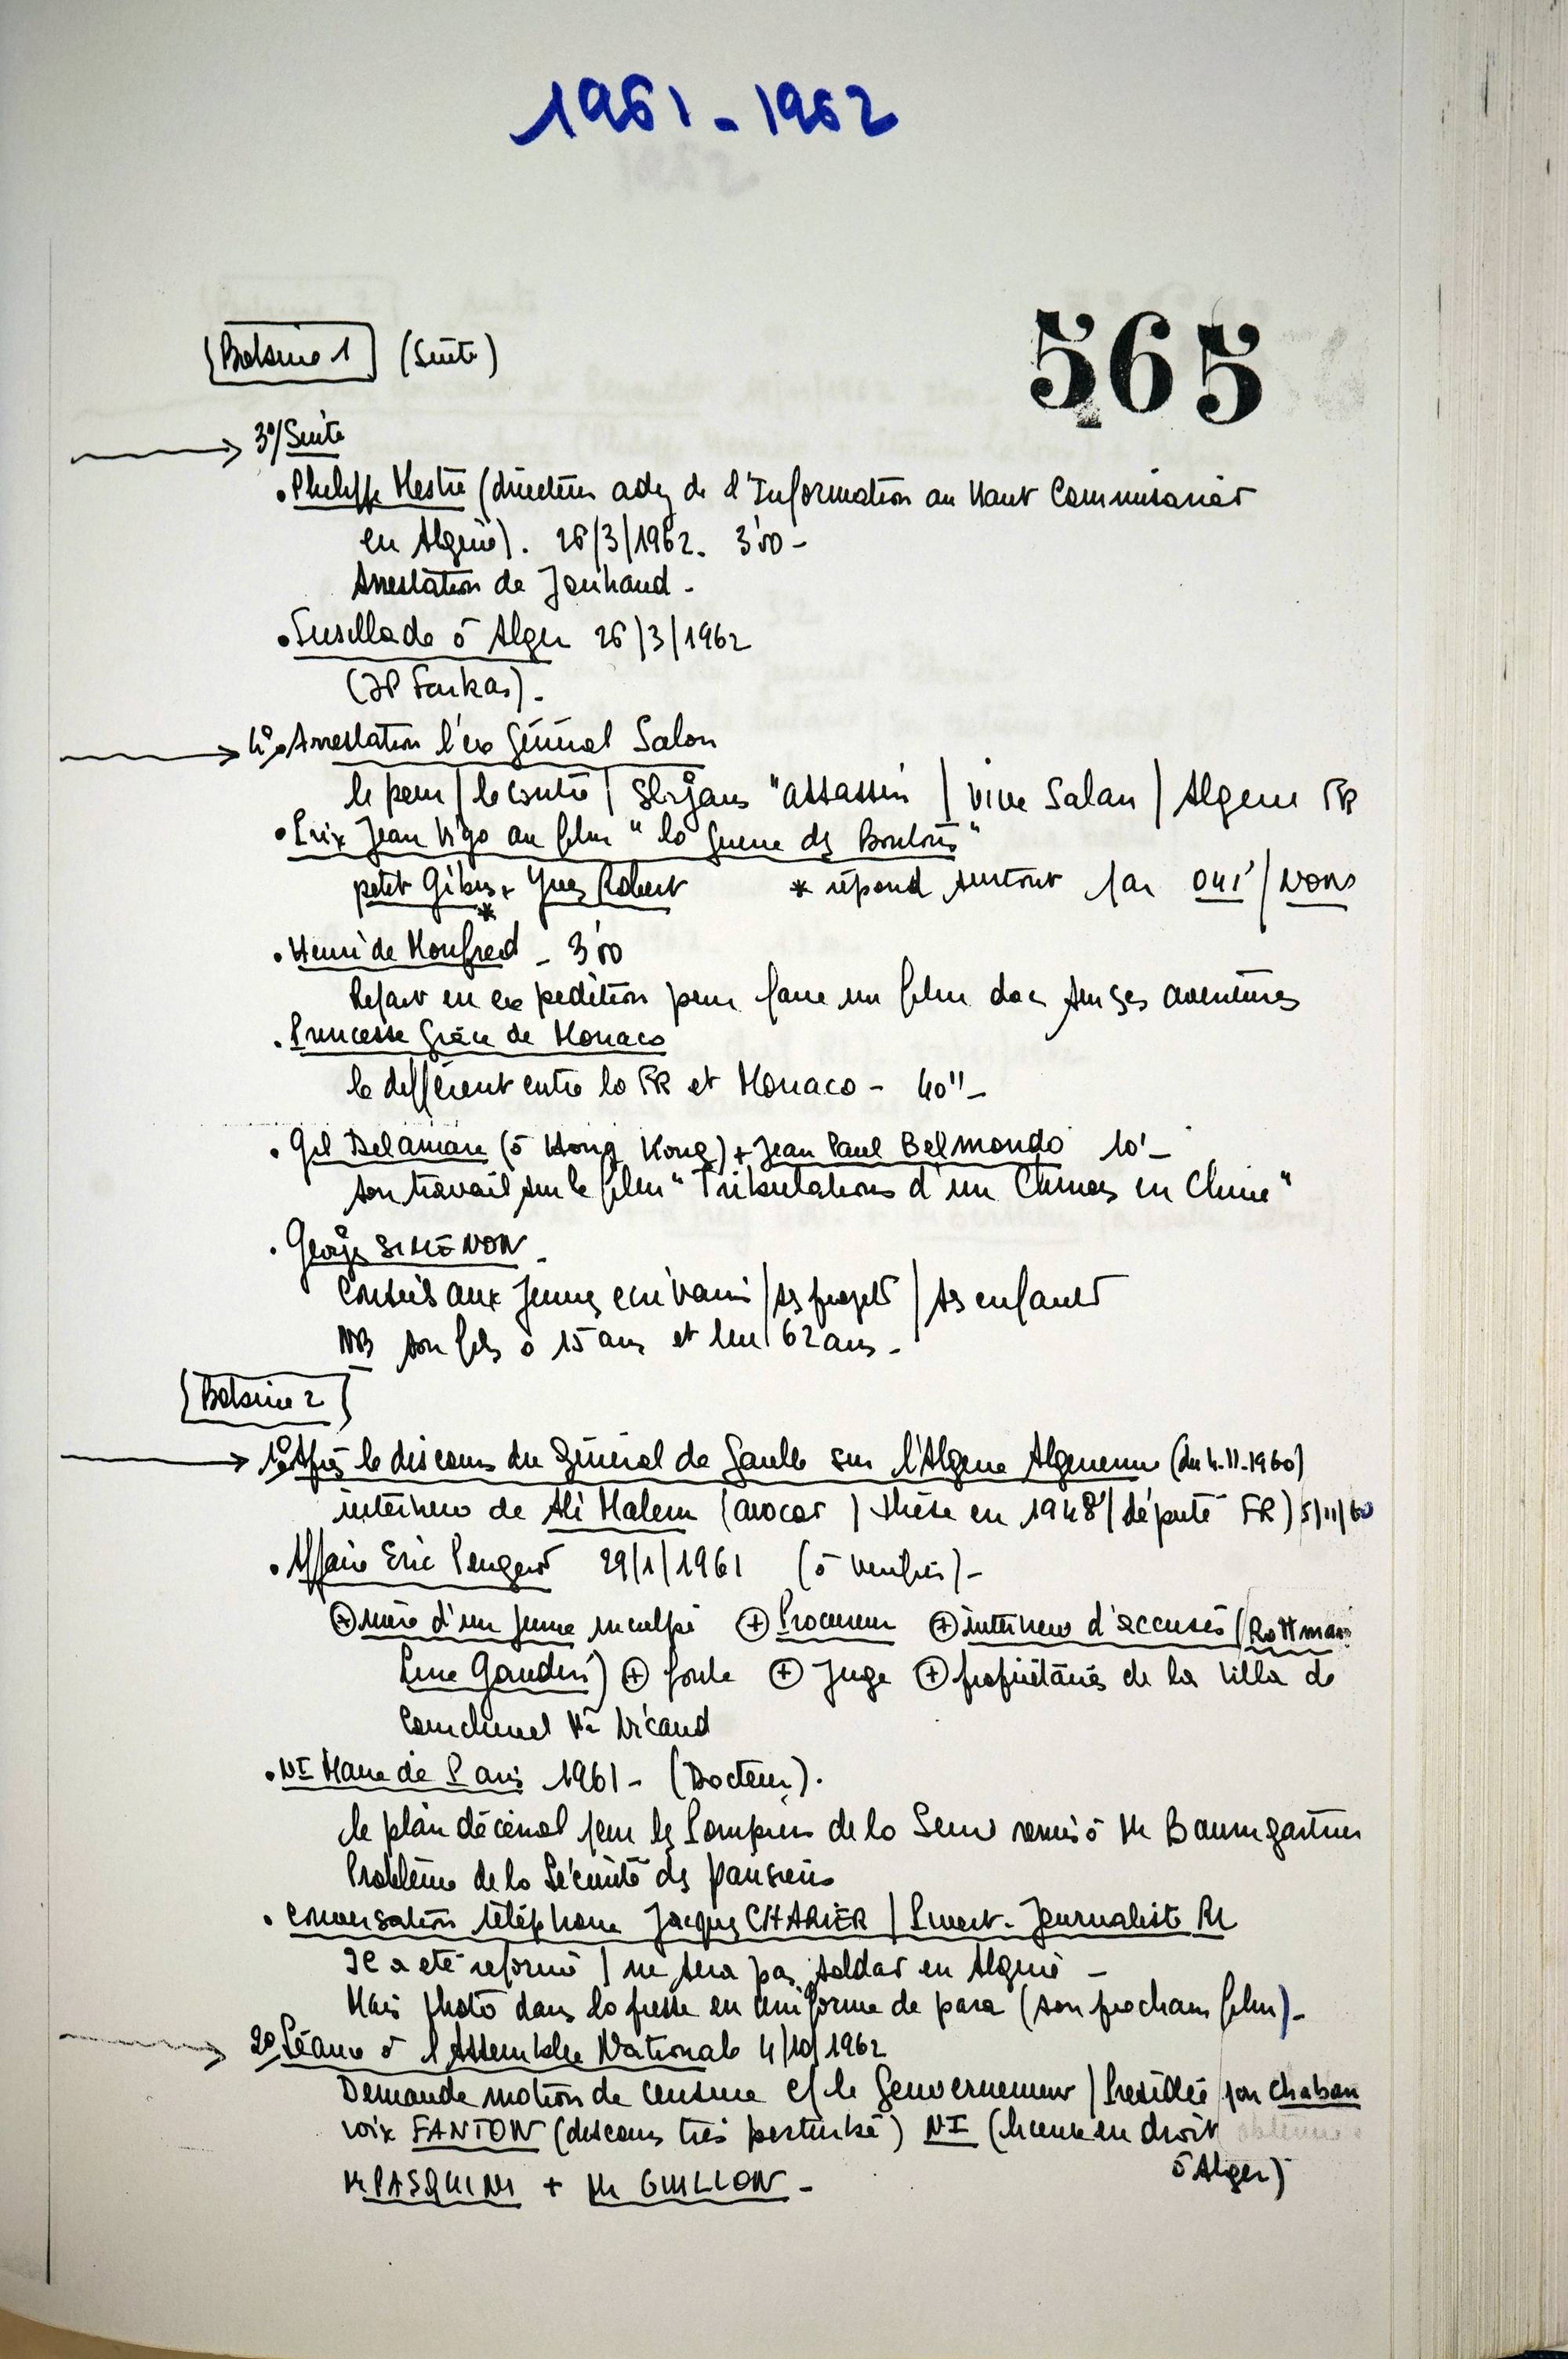 1961-1962
565
Bobine 1 (Suite)
3°/ Suite
• Philippe Mestre (directeur adj de l'Information au Haut Commissariat
en Algérie). 26/3/1962. 3'00 -
Arrestation de Jouhaud -
• Fusillade à Alger 26/3/1962
(JP Farkas).
4° • Arrestation l'ex Général Salan
le pour / le contre / slogans "assassin / vive Salan / Algérie FR
• Prix Jean Vigo au film "la guerre des Boutons"
petit Gibus* + Yves Robert * répond surtout par oui / nons
• Henri de Monfreid - 3'00
Repart en expédition pour faire un film doc sur ses aventures
• Princesse Grâce de Monaco
le différent entre la FR et Monaco - 40" -
• Gil Delamare (à Hong Kong) + Jean Paul Belmondo 10' -
son travail sur le film "Tribulations d'un Chinois en Chine"
• Georges SIMENON -
Conseils aux jeunes écrivains / ses projets / ses enfants
NB son fils a 15 ans et lui 62 ans -
Bobine 2
1° Après le discours du Général de Gaulle sur l'Algérie Algérienne (du 4.11.1960)
interview de Ali Malem (avocat / thèse en 1948 / député FR) 5/11/60
• Affaire Eric Peugeot 29/1/1961 (à vérifier) -
⊕ mère d'un jeune inculpé ⊕ Procureur ⊕ interview d'accusés (Rottman
Gaudin) ⊕ foule ⊕ Juge ⊕ propriétaires de la villa de
Courchevel Mr Nicaud
• NI Maire de Paris 1961 - (Docteur).
le plan décénal pour les Pompiers de la Seine remis à Mr Baumgartner
Problème de la Sécurité des parisiens
• Conversation téléphone Jacques CHARIER / Journaliste RL
Il a été réformé / ne sera pas soldat en Algérie -
Mais photo dans la presse en uniforme de para (son prochain film) -
2° Séance à l'Assemblée Nationale 4/10/1962
Demande motion de censure c/ le Gouvernement / Présidée par Chaban
voix FANTON (discours très perturbé) NI (licence en droit obtenue
à Alger)
M PASQUINI + Mr GUILLON -